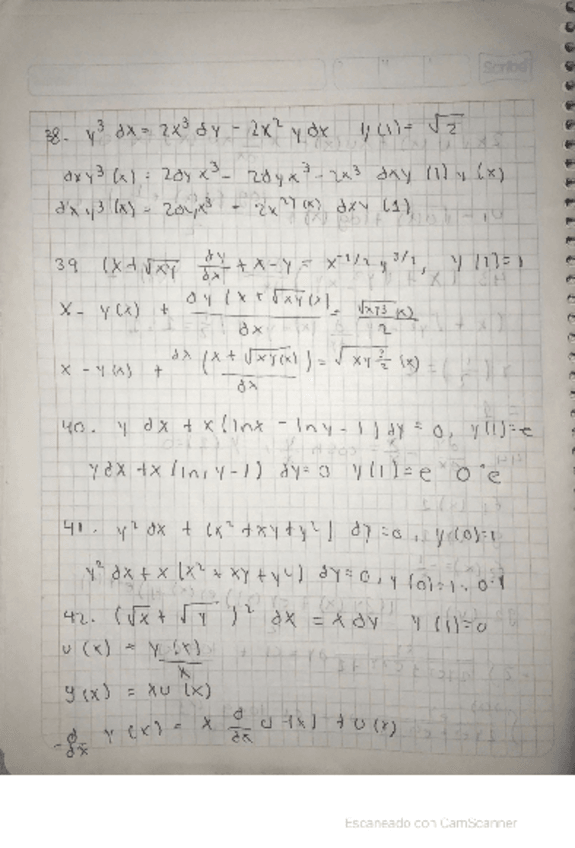 Scribe
38. y³ dx = 2x³ dy - 2x² y dx y(1) = √2
dxy³(x) = 2dy x³ - 2dyx³ - 2x³ dxy (1) y (x)
dx y³ (x) - 2dyx³ - 2x²y(x) dxy (1)
39 (x+√xy dy/dx + x - y = x^-1/2 y^3/2, y(1)=1
x - y(x) + dy(x+√xy(x))/dx =
x - y(x) + dx (x + √xy(x))/dx = √xy 3/2 (x)
40. y dx + x(lnx - lny - 1) dy = 0, y(1)=e
ydx +x (ln, y-1) dy=0 y(1)=e 0 °e
41. y² dx + (x² + xy + y²) dy = 0, y(0)=1
y² dx + x (x² + xy + y²) dy=0, y(0)=1
42. (√x + √y)² dx = x dy y(1)=0
u(x) = y(x)/x
y(x) = xu(x)
d/dx y(x) = x d/dx u(x) + u(x)
Escaneado con CamScanner